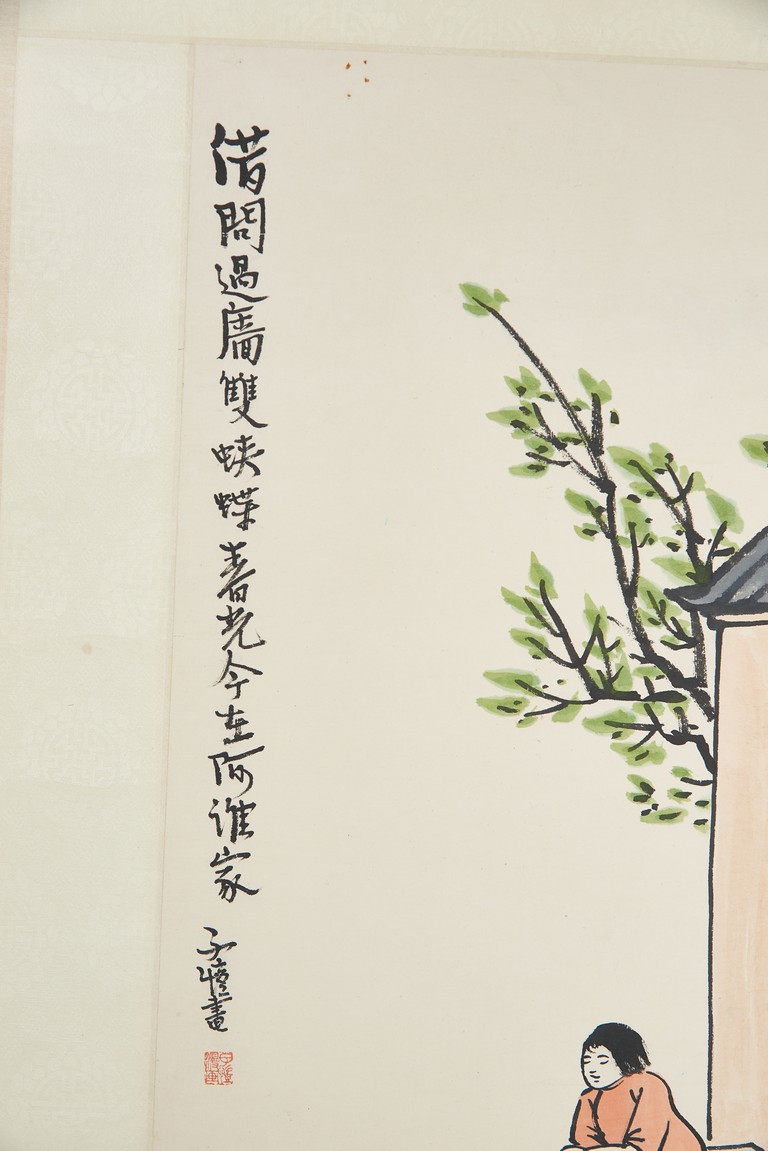 借問過廧雙蛺蝶春光今在阿誰家
子愷畫